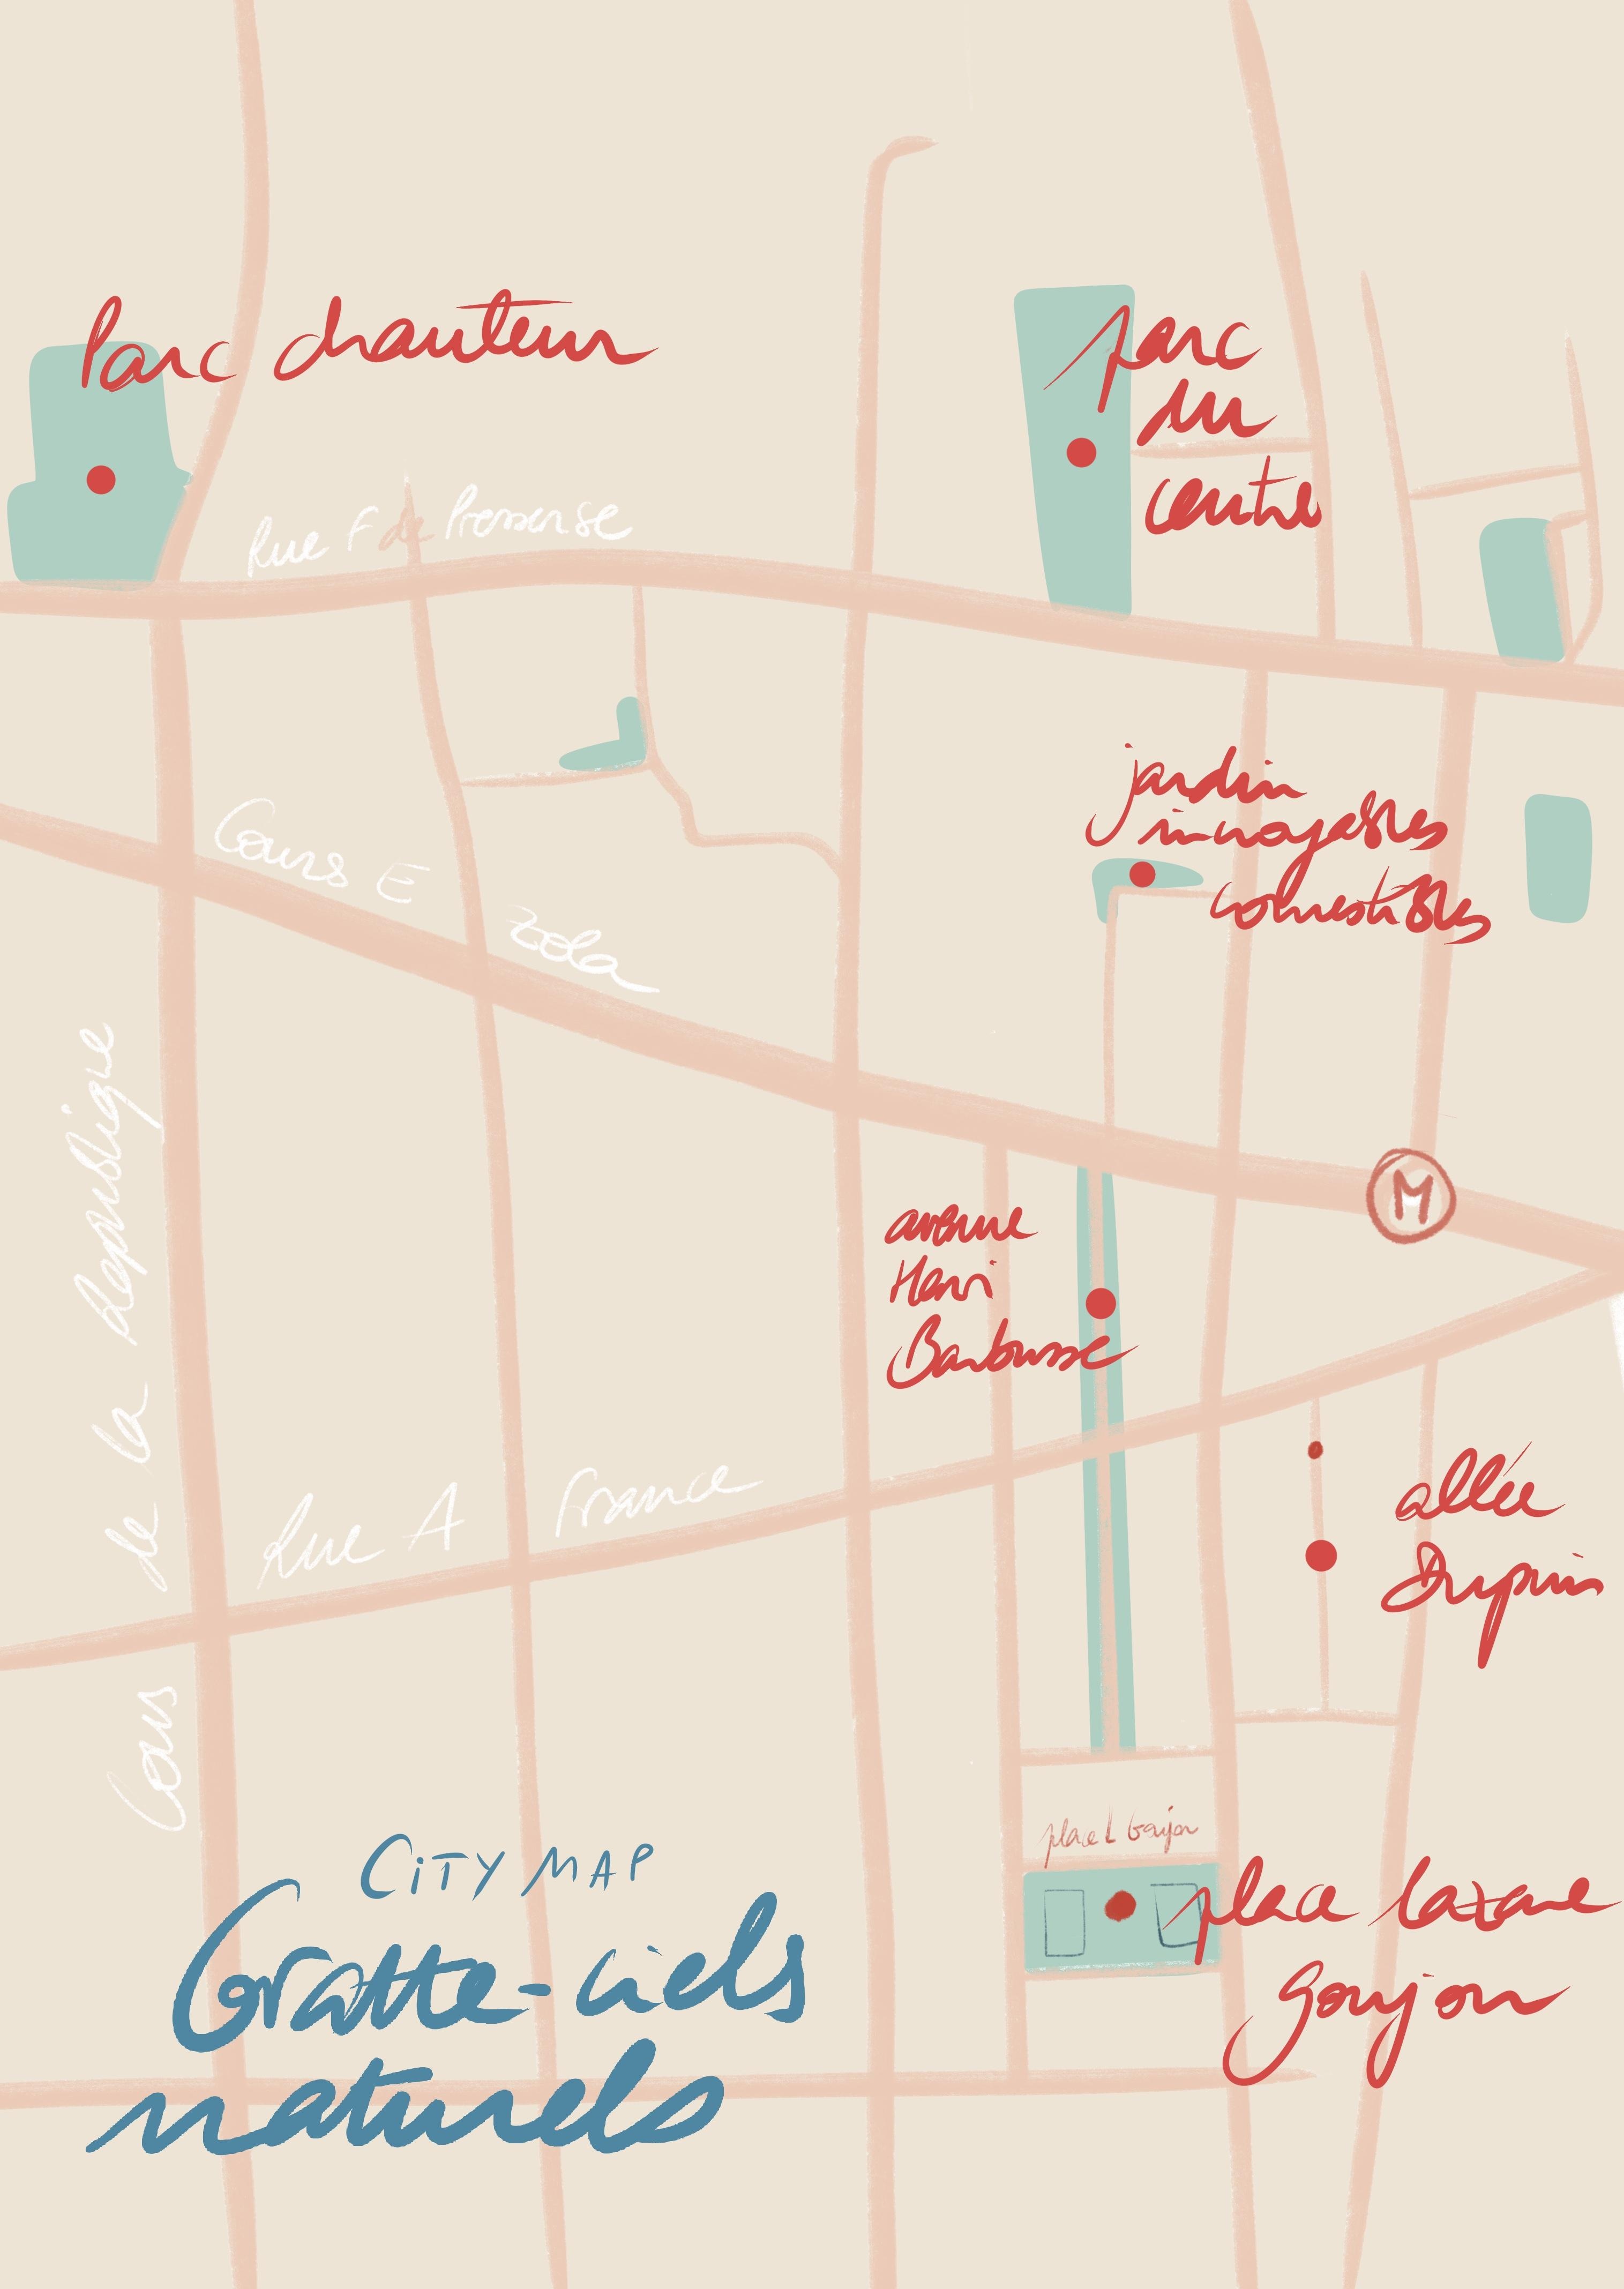 Parc chanteur
parc
du
centre
Rue F de Pressensé
jardin
incroyables
comestibles
Cours E Zola
M
avenue
Henri
Barbusse
Cours de la République
Rue A France
allée
Drypin
place L Goujon
place Lazare
goujon
CiTY MAP
Gratte-ciels
naturels